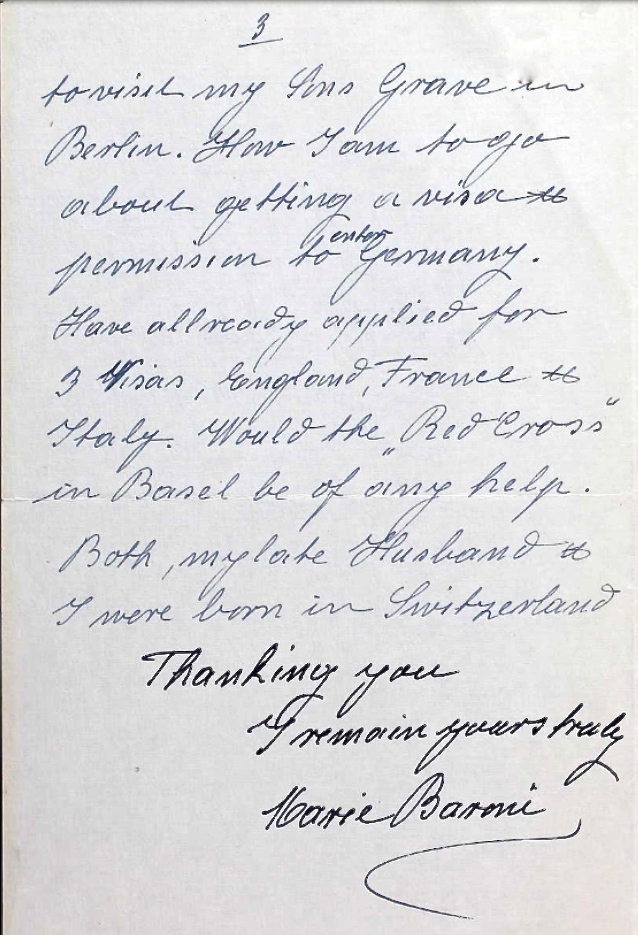 3
to visit my Sons Grave in
Berlin. How I am to go
about getting a visa &
permission to enter Germany.
Have allready applied for
3 Visas, England, France &
Italy. Would the „Red Cross"
in Basel be of any help.
Both, my late Husband &
I were born in Switzerland
Thanking you
I remain yours truly
Marie Baroni